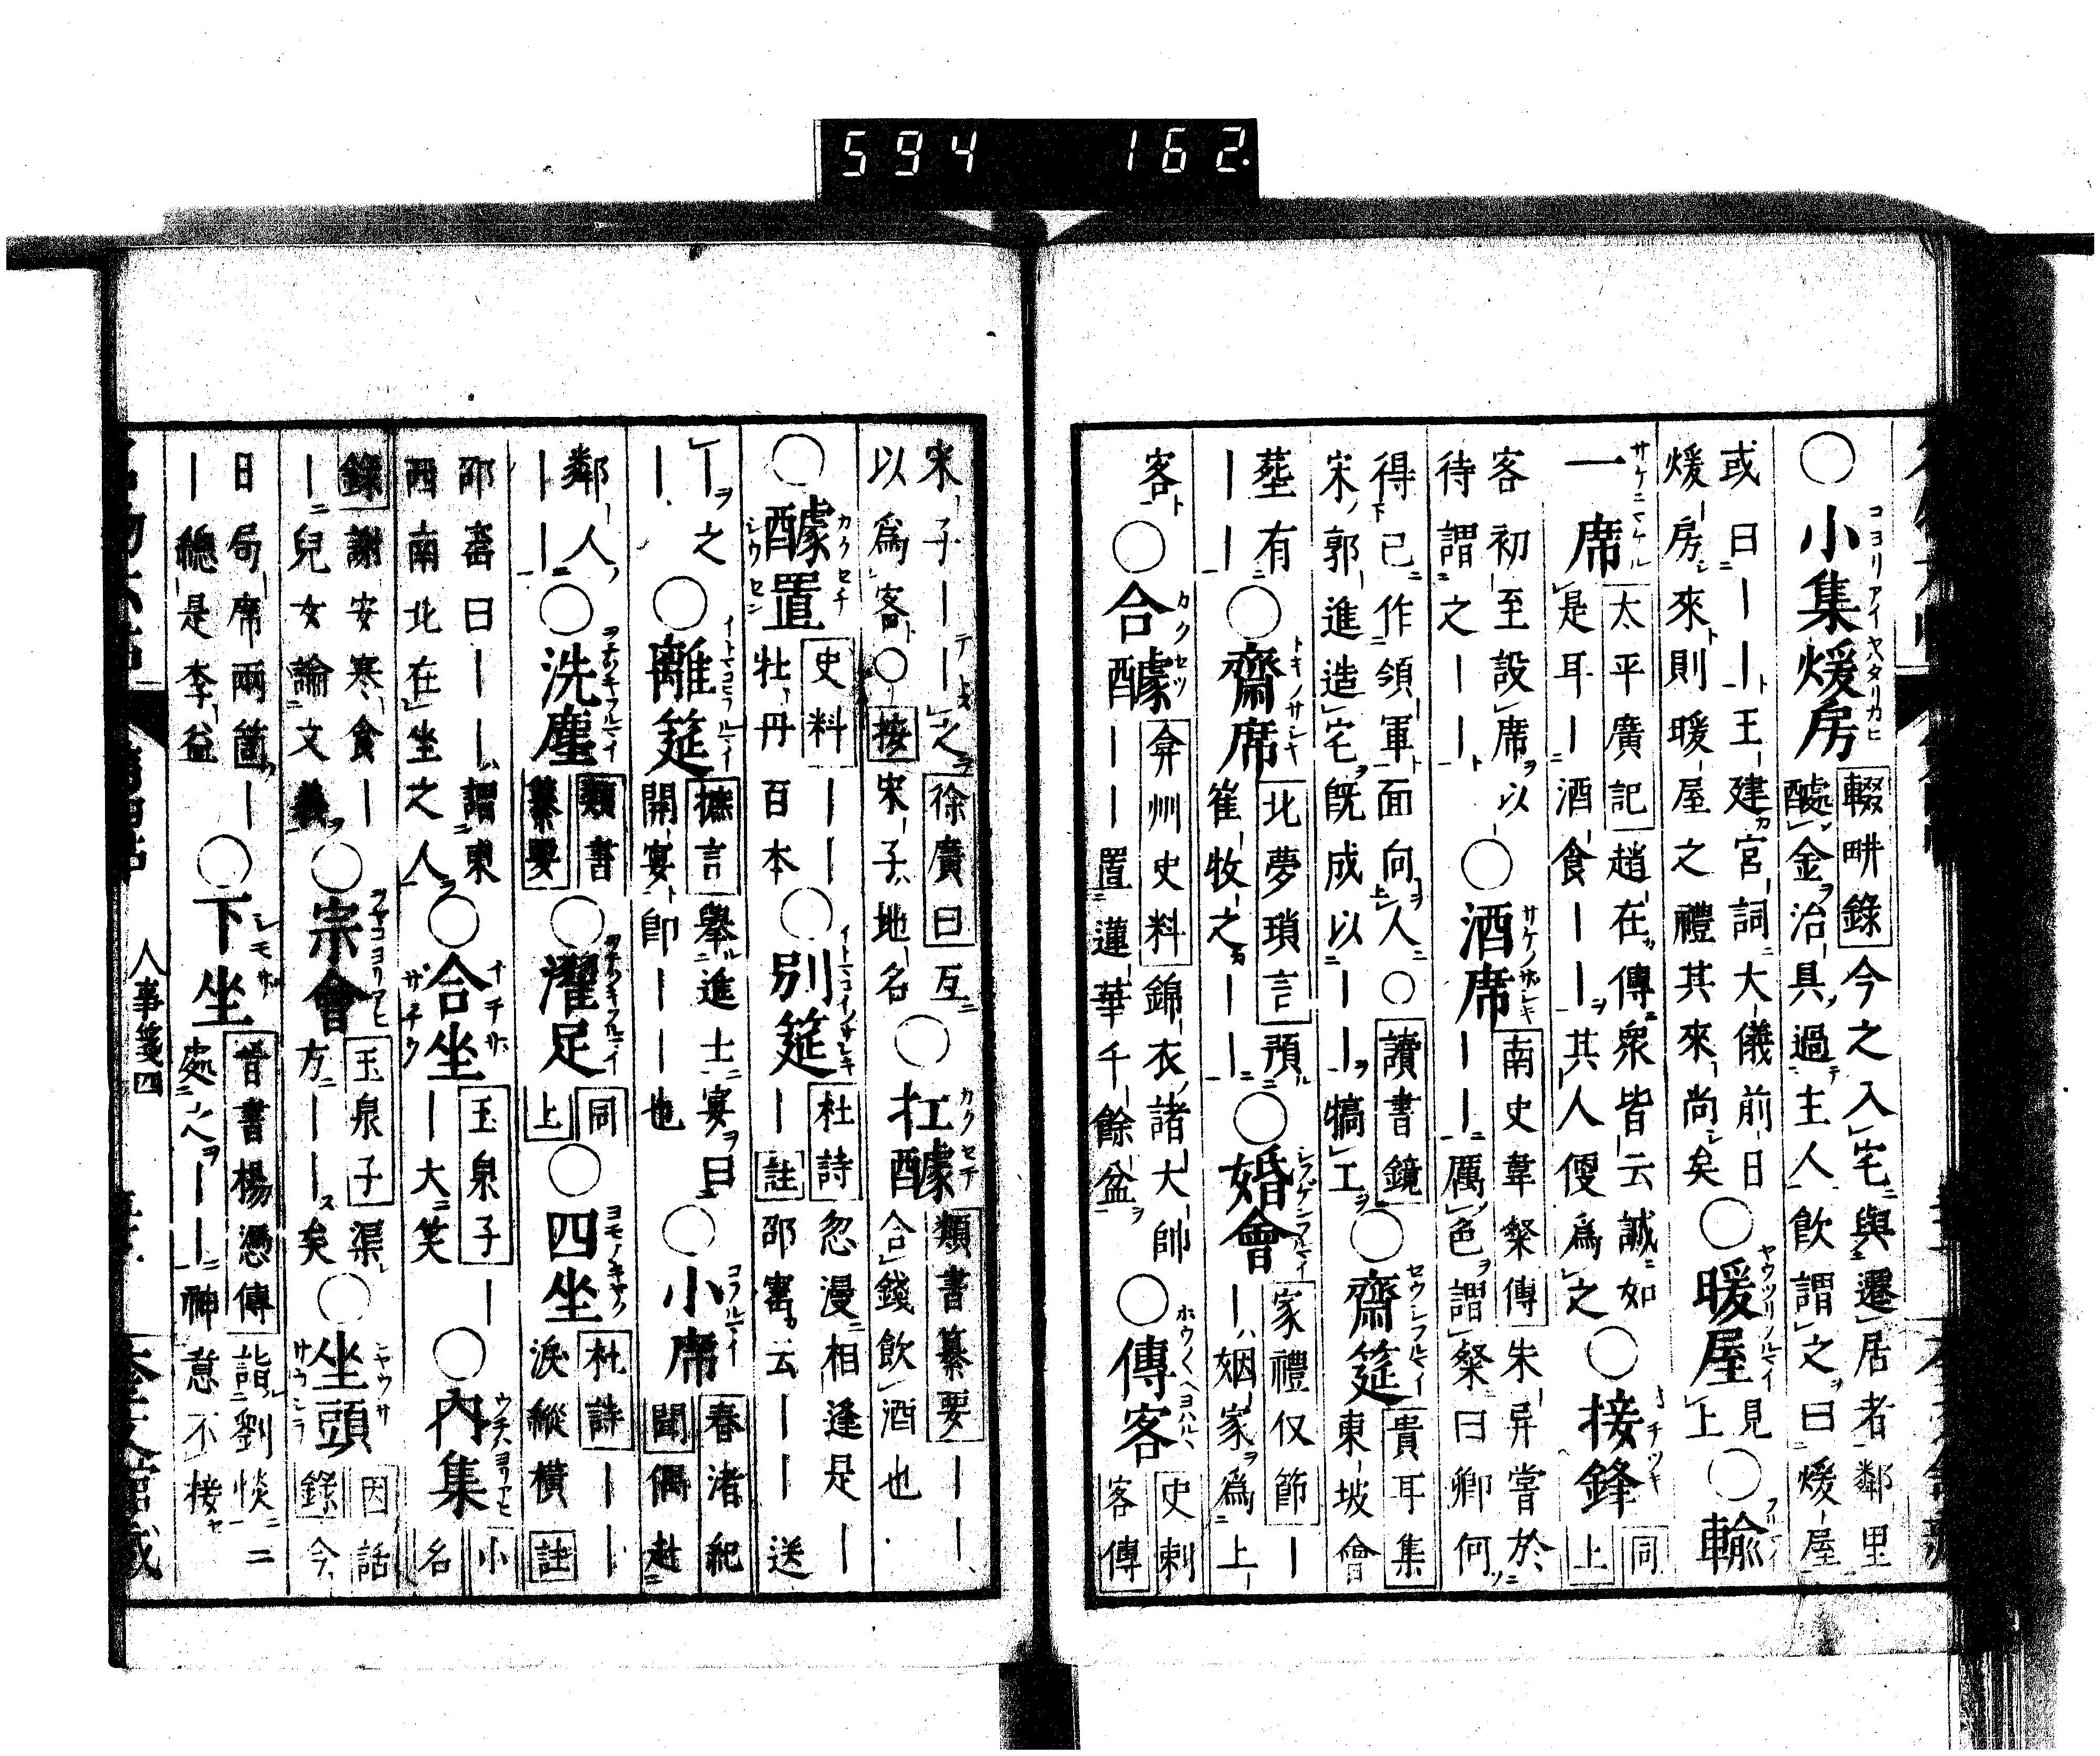 594 162
○小集煖房 輟畊錄 今之入宅與遷居者鄰里
醵金治具過主人飲謂之曰煖屋
或曰——王建宮詞大儀前日
煖房來則暖屋之禮其來尚矣 ○暖屋 見上 ○輸
一席 太平廣記 趙在傳衆皆云誠如
是耳—酒食——其人便爲之 ○接鋒 同上
客初至設席以
待謂之—— ○酒席 南史韋粲傳 朱异嘗於
——厲色謂粲曰卿何
得已作領軍面向人○讀書鏡
宋郭進造宅既成以——犒工 ○齋筵 貴耳集
東坡會
葬有
—— ○齋席 北夢瑣言 預
崔牧之—— ○婚會 家禮仅節 —
—姻家爲上
客 ○合醵 弇州史料 錦衣諸大帥
——置蓮華千餘盆 ○傳客 史剌
客傳
宋子——之 徐廣曰 互
以爲客○接宋子地名 ○扛醵 類書纂要 ——
合錢飲酒也
○醵置 史料 ———
牡丹百本 ○別筵 杜詩 忽漫相逢是—
—註 邵寶云——送
—之
— ○離筵 摭言 擧進士宴曰
開宴卽——也 ○小席 春渚紀
聞 偶赴
鄰人
—— ○洗塵 類書
纂要 ○濯足 同
上 ○四坐 杜詩 ——
淚縱橫 註
邵寶曰——謂東
西南北在坐之人 ○合坐 玉泉子 —
—大笑 ○內集 小
名
錄 謝安寒食—
—兒女論文義 ○宗會 玉泉子 渠
方——矣 ○坐頭 因話
錄 今
日局席兩箇—
—總是李益 ○下坐 晉書楊憑傳 詣劉惔二
處之——神意不接
人事箋四